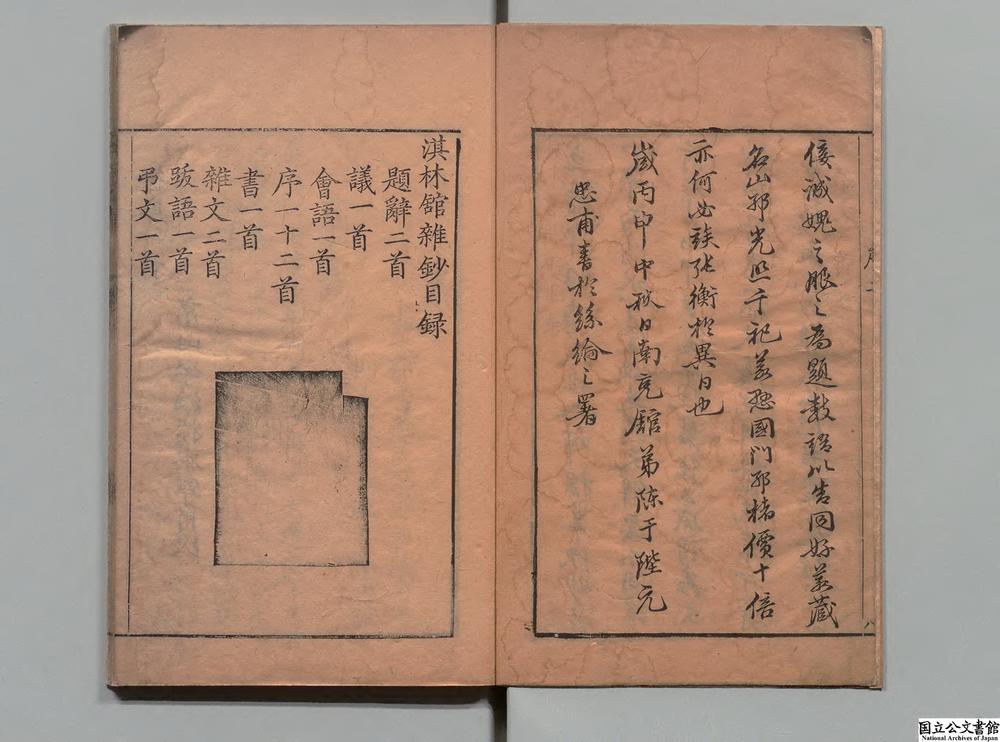 倿誠媿之眼之為題數語以告同好若藏
名山邪光照千祀若懸國門邪楮價十倍
亦何必誇張衡於異日也
歲丙申中秋日南充館弟陳于陛元
忠甫書於絲綸之署
序二
八
淇林舘雜鈔目録
題辭二首
議一首
會語一首
序一十二首
書一首
雜文二首
跋語一首
弔文一首
国立公文書館
National Archives of Japan